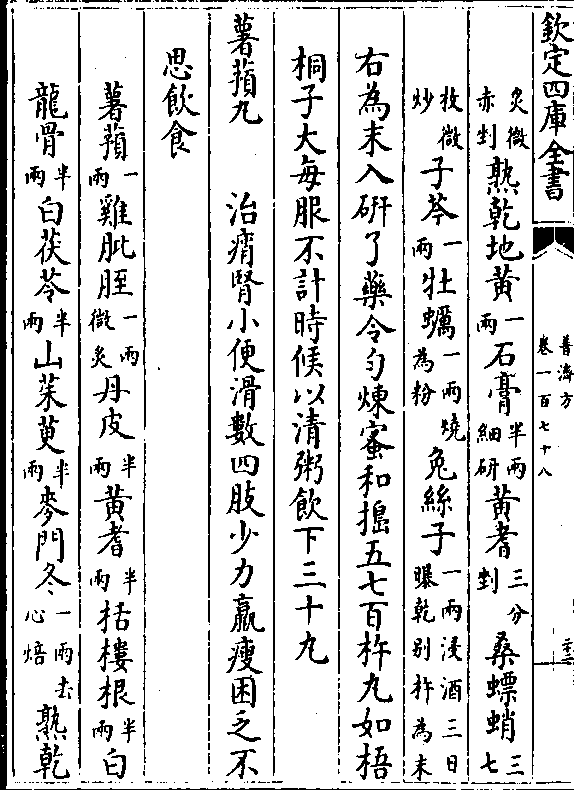 欽定四庫全書
普濟方
卷一百七十八
炙微赤剉熟乾地黃一兩石膏半兩細研黃耆三分剉桑螵蛸三七
枚微炒子芩一兩牡蠣一兩燒為粉兔絲子一兩浸酒三日曝乾别杵為末
右為末入研了藥令匀煉蜜和搗五七百杵丸如梧
桐子大每服不計時候以清粥飲下三十丸
薯蕷丸 治痟腎小便滑數四肢少力羸瘦困乏不
思飲食
薯蕷一兩雞肶胵一兩微炙丹皮半兩黃耆半兩括樓根半兩白
龍骨半兩白茯苓半兩山茱萸半兩麥門冬一兩去心焙熟乾